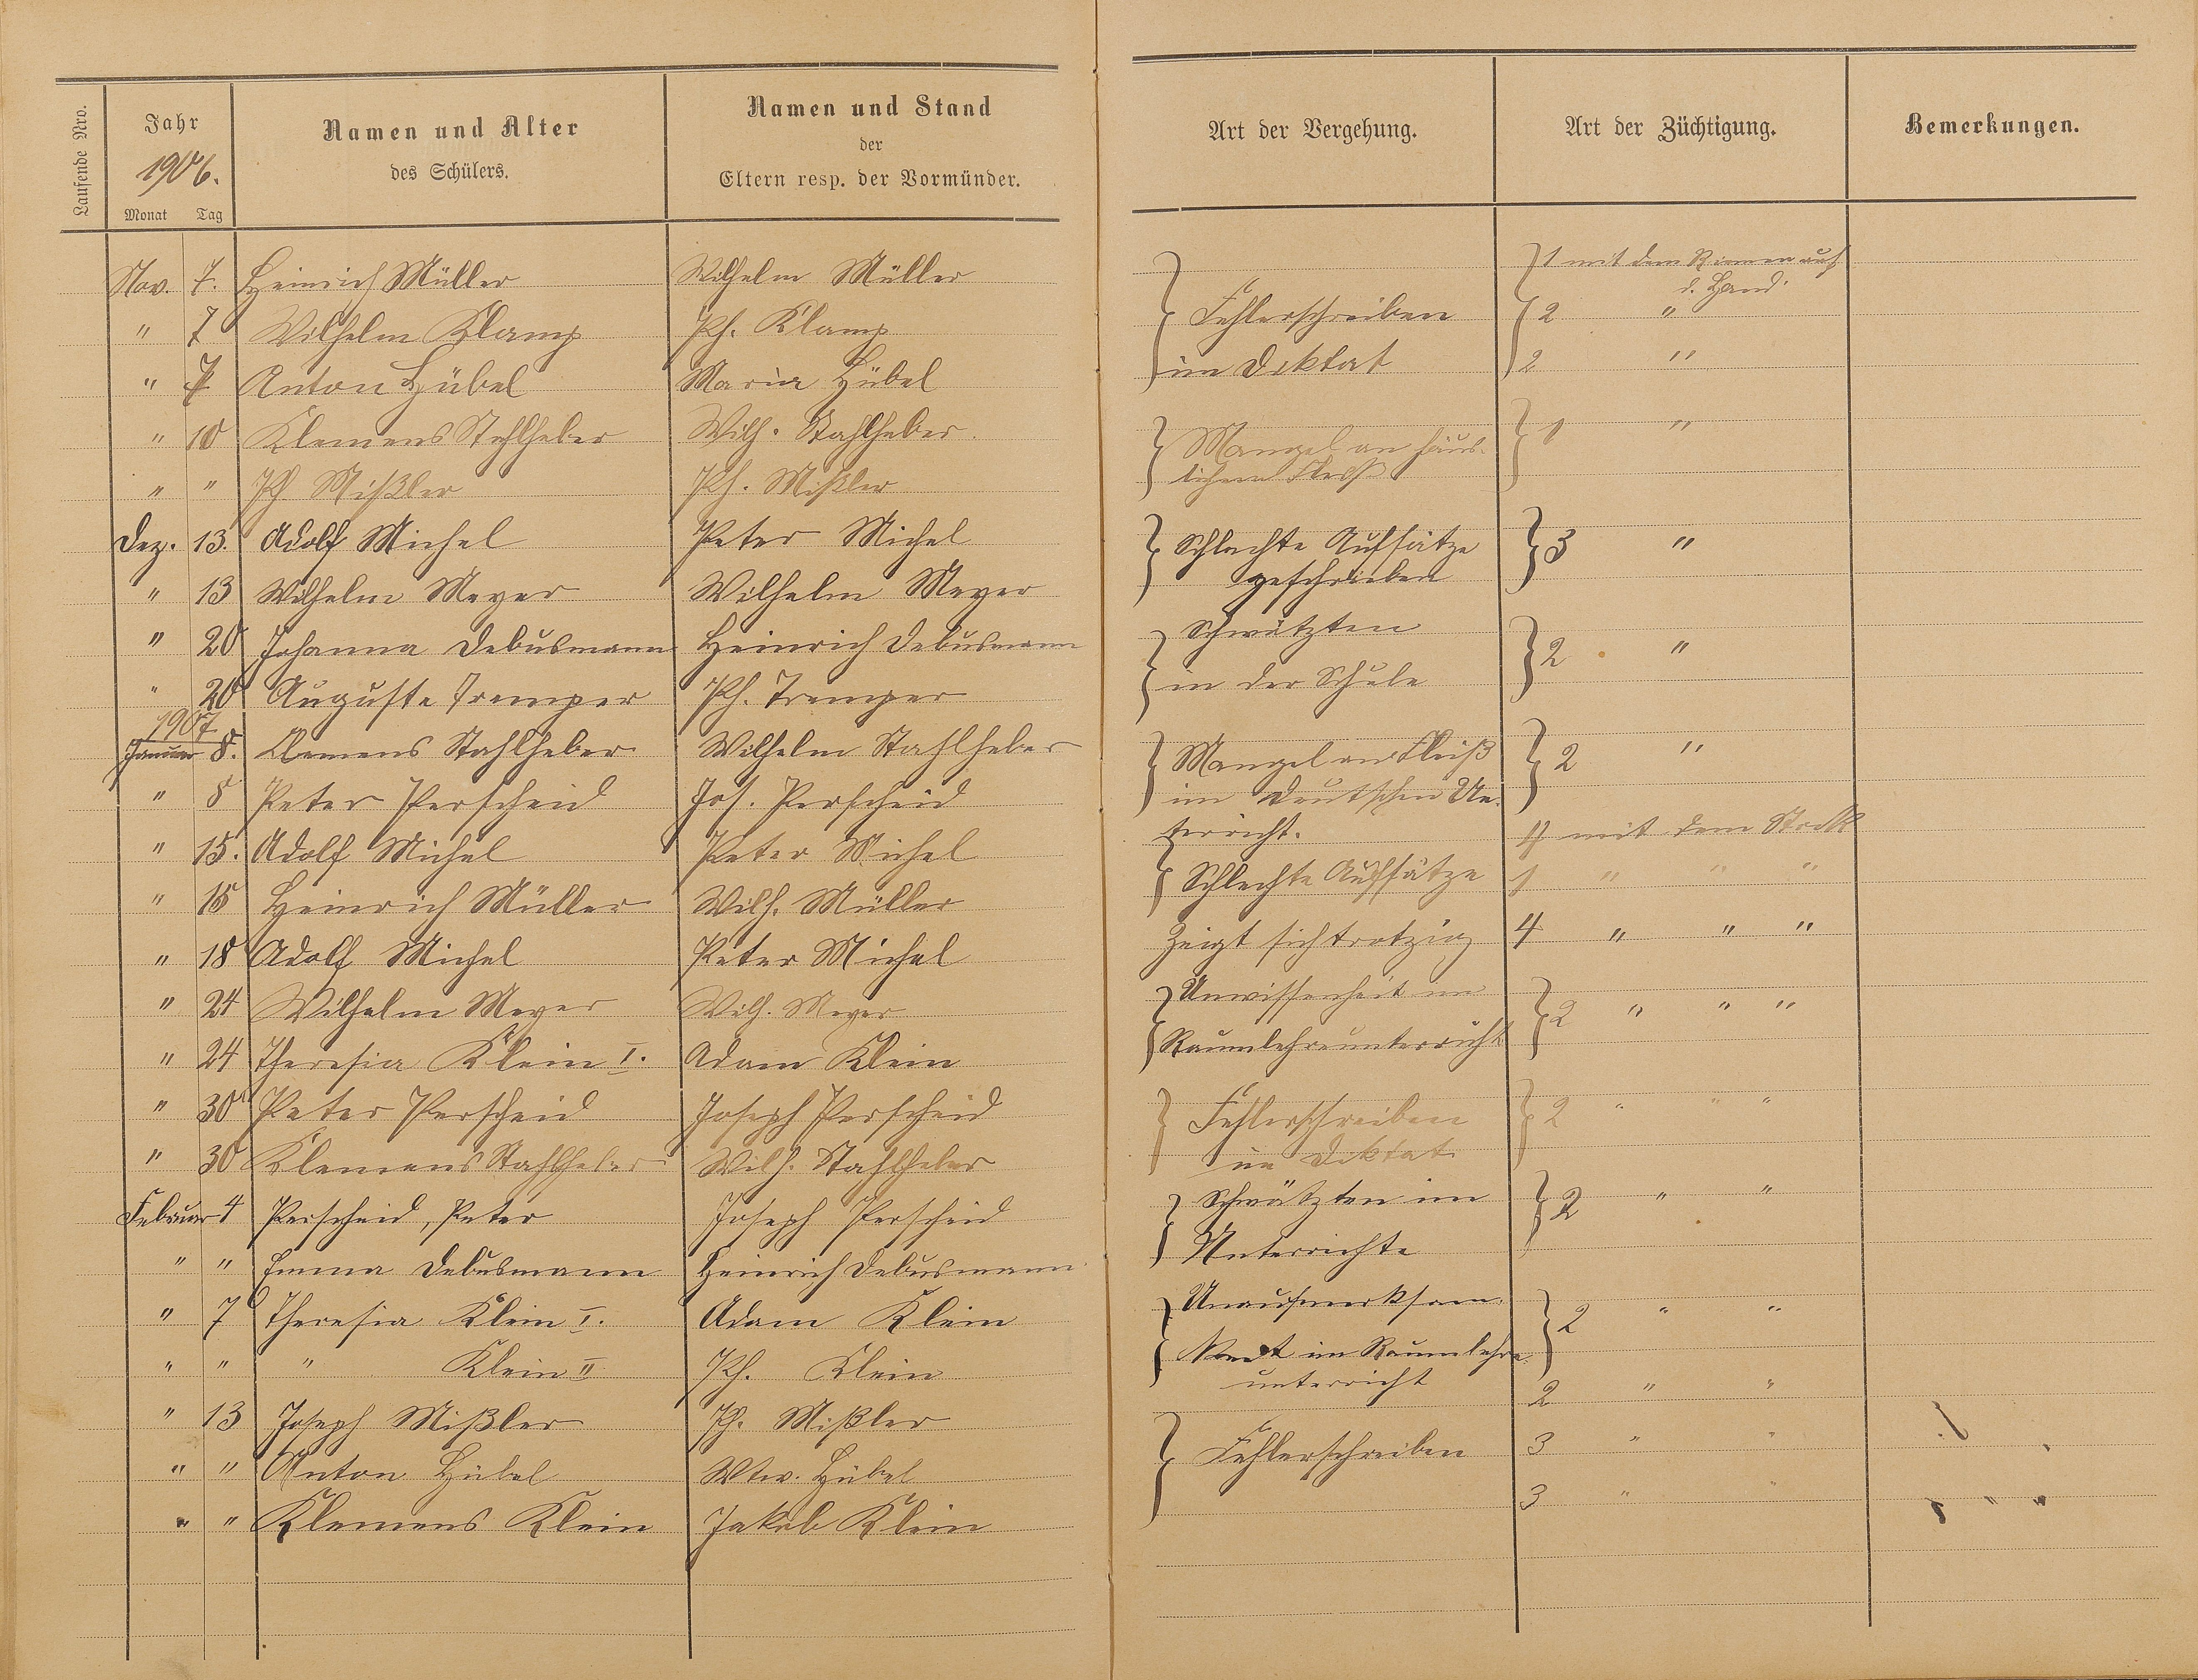 Laufende Nro.
Jahr
1906.
Monat Tag
Namen und Alter
des Schülers.
Namen und Stand
der
Eltern resp. der Vormünder.
Art der Vergehung.
Art der Züchtigung.
Bemerkungen.
Nov. 7. Heinrich Müller Wilhelm Müller
" 7 Wilhelm Klamp Ph. Klamp
" 7 Anton Hübel Maria Hübel
" 10 Klemens Stahlheber Wilh. Stahlheber.
" " Ph Mißler Ph. Mißler
Dez. 13. Adolf Michel Peter Michel
" 13 Wilhelm Meyer Wilhelm Meyer
" 20 Johanna Debusmann Heinrich Debusmann
" 20 Auguste Tremper Ph. Tremper
1907
Januar 8. Clemens Stahlheber Wilhelm Stahlheber
" 8 Peter Perscheid Jos. Perscheid
" 15. Adolf Michel Peter Michel
" 15 Heinrich Müller Wilh. Müller
" 18 Adolf Michel Peter Michel
" 24 Wilhelm Meyer Wilh. Meyer
" 24 Theresia Klein I. Adam Klein
" 30 Peter Perscheid Joseph Perscheid
" 30 Klemens Stahlheber Wilh. Stahlheber
Februar 4 Perscheid, Peter Joseph Perscheid
" " Emma Debusmann Heinrich Debusmann
" 7 Theresia Klein I. Adam Klein
" " " Klein II Ph. Klein
" 13 Joseph Mißler Ph. Mißler
" " Anton Hübel Wtw. Hübel
" " Klemens Klein Jakob Klein
1 mit dem Riemen auf
d. Hand.
Fehlerschreiben 2 "
im Diktat 2 "
Mangel an häus- 1 "
lichem Fleiß
Schlechte Aufsätze 3 "
geschrieben
Schwätzten
in der Schule 2 "
Mangel an Fleiß 2 "
im deutschen Un-
terricht. 4 mit dem Stock
Schlechte Aufsätze 1 " " "
Zeigt sich trotzig 4 " " "
Unwissenheit im 2 " " "
Raumlehreunterricht
Fehlerschreiben 2 " " "
im Diktat
Schwätzten im 2 " "
Unterrichte
Unaufmerksam- 2 " "
keit im Raumlehre-
unterricht 2 " "
Fehlerschreiben 3 " "
3 " "